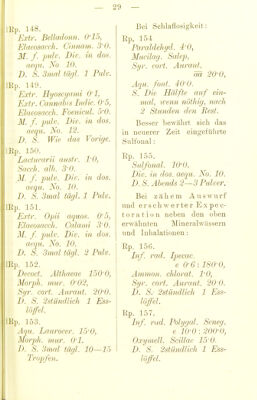 — 29 —
Rp. 148.
Extr. Belladonn. 0·15,
Elaeosacch. Cinnam. 3·0.
M. f. pulv. Div. in dos.
aequ. No. 10.
D. S. 3mal tägl. 1 Pulv.
Rp. 149.
Extr. Hyoscyami 0·1,
Extr. Cannabis Indic. 0·5,
Elaeosacch. Foenicul. 5·0.
M. f. pulv. Div. in dos.
aequ. No. 12.
D. S. Wie das Vorige.
Rp. 150.
Lactucarii austr. 1·0,
Sacch. alb. 3·0.
M. f. pulv. Div. in dos.
aequ. No. 10.
D. S. 3mal tägl. 1 Pulv.
Rp. 151.
Extr. Opii aquos. 0·5,
Elaeosacch. Calami 3·0.
M. f. pulv. Div. in dos.
aequ. No. 10.
D. S. 3mal tägl. 2 Pulv.
Rp. 152.
Decoct. Althaeae 150·0,
Morph. mur. 0·02,
Syr. cort. Aurant. 20·0.
D. S. 2stündlich 1 Ess-
löffel.
Rp. 153.
Aqu. Laurocer. 15·0,
Morph. mur. 0·1.
D. S. 3mal tägl. 10—15
Tropfen.
Bei Schlaflosigkeit:
Rp. 154
Paraldehyd. 4·0,
Mucilag. Salep,
Syr. cort. Aurant.
āā 20·0,
Aqu. font. 40·0.
S. Die Hälfte auf ein-
mal, wenn nöthig, nach
2 Stunden den Rest.
Besser bewährt sich das
in neuerer Zeit eingeführte
Sulfonal:
Rp. 155.
Sulfonal. 10·0.
Div. in dos. aequ. No. 10.
D. S. Abends 2—3 Pulver.
Bei zähem Auswurf
und erschwerter Expec-
toration neben den oben
erwähnten Mineralwässern
und Inhalationen:
Rp. 156.
Inf. rad. Ipecac
e 0·6 : 180·0,
Ammon. chlorat. 1·0,
Syr. cort. Aurant. 20·0.
D. S. 2stündlich 1 Ess-
löffel.
Rp. 157.
Inf. rad. Polygal. Seneg.
e 10·0 : 200·0,
Oxymell. Scillae 15·0.
D. S. 2stündlich 1 Ess-
löffel.